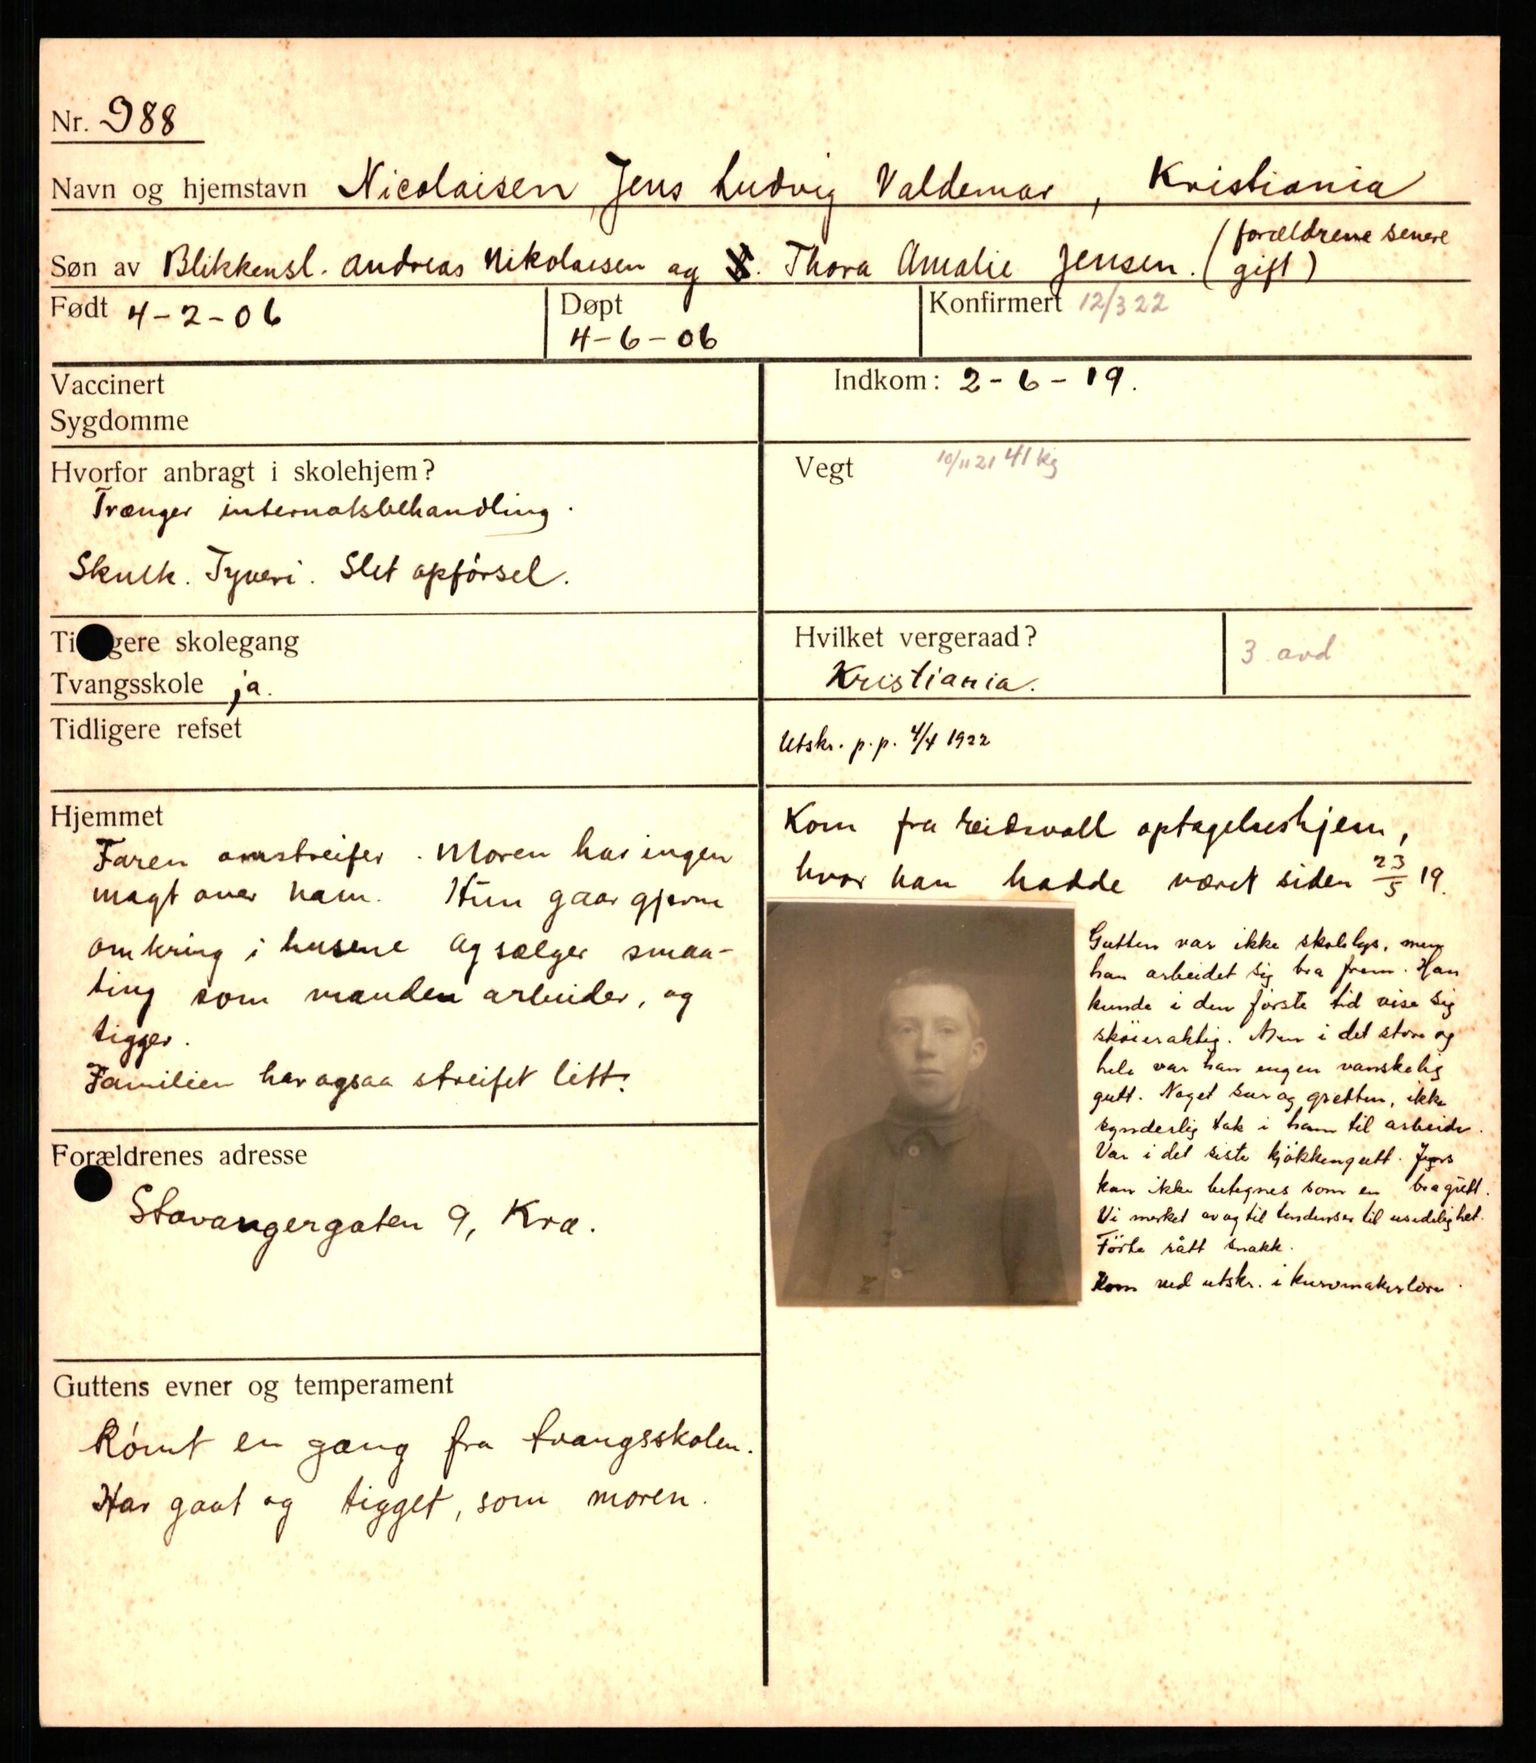 Nr. 988
Navn og hjemstavn Nicolaisen, Jens Ludvig Valdemar, Kristiania
Søn av Blikkensl. Andreas Nikolaisen og Thora Amalie Jensen. (forældrene senere
gift)
Født 4-2-06
Døpt
4-6-06
Konfirmert 12/3 22
Vaccinert
Sygdomme
Indkom: 2-6-19.
Hvorfor anbragt i skolehjem?
Trænger internatsbehandling.
Skulk. Tyveri. Slet opførsel.
Vegt 10/11 21 41 kg
Ti gere skolegang
Tvangsskole ja.
Hvilket vergeraad?
Kristiania.
3 avd
Tidligere refset
Utskr. p.p. 4/4 1922
Hjemmet
Faren omstreifer. Moren har ingen
magt over ham. Hun gaar gjerne
omkring i husene og sælger smaa-
ting som manden arbeider, og
tigger.
Familien har ogsaa streifet litt.
Kom fra Eidsvoll optagelseshjem,
hvor han hadde været siden 23/5 19.
Gutten var ikke skoleløs, men
han arbeidet sig bra frem. Han
kunde i den første tid vise sig
skøieraktig. Men i det store og
hele var han ingen vanskelig
gutt. Noget sur og gretten, ikke
synderlig tak i ham til arbeide.
Var i det siste kjøkkengutt. Jens
kan ikke betegnes som en bra gutt.
Vi merket av og til tendenser til usedelighet.
Förte rått snakk.
Kom ved utskr. i kurvmakerlære.
Forældrenes adresse
Stavangergaten 9, Kra.
Guttens evner og temperament
Rømt en gang fra tvangsskolen.
Har gaat og tigget, som moren.